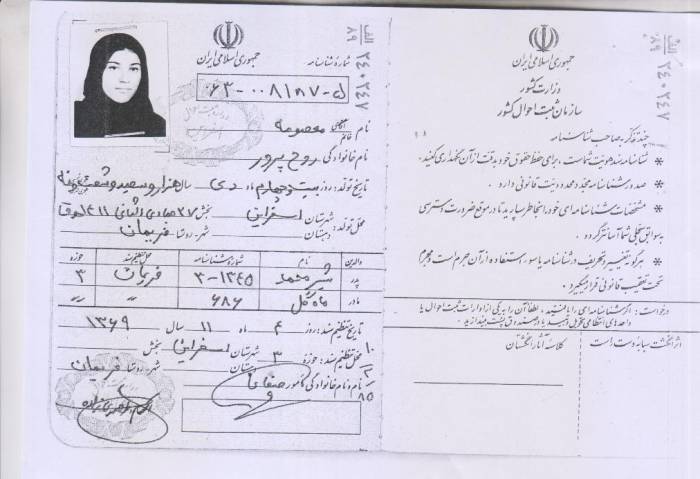 جمهوری اسلامی ایران
شماره شناسنامه
الف ۸۹ ۲۴۰۲۴۷
نام خانم معصومه
نام خانوادگی روح پرور
تاریخ تولد: روز بیست و چهارم ماه دی سال هزار و سیصد و شصت و نه
محل تولد: شهرستان اسفراین بخش
شهر - روستا فریمان
والدین نام شماره شناسنامه محل تنظیم سند حوزه
پدر شیرمحمد ۳-۱۳۴۵ فریمان ۳
مادر ماه گل ۶۸۶ " "
تاریخ تنظیم سند: روز ۴ ماه ۱۱ سال ۱۳۶۹
محل تنظیم سند: حوزه ۳ شهرستان اسفراین بخش
دهستان شهر - روستا فریمان
نام و نام خانوادگی مامور
جمهوری اسلامی ایران
وزارت کشور
سازمان ثبت احوال کشور
الف ۸۹ ۲۴۰۲۴۷
چند تذکر به صاحب شناسنامه
* شناسنامه سند هویت شماست، برای حفظ حقوق خود به دقت از آن نگهداری کنید.
* صدور شناسنامه مجدد محدودیت قانونی دارد.
* مشخصات شناسنامه ای خود را بخاطر بسپارید تا در موقع ضرورت دسترسی
به سوابق سجلی شما آسانتر گردد.
* هرگونه تغییر و تحریف در شناسنامه یا سوء استفاده از آن جرم است و مجرم
تحت تعقیب قانونی قرار میگیرد.
درخواست: اگر شناسنامه ای را یافتید، لطفاً آن را به یکی از ادارات ثبت احوال یا
واحدهای انتظامی تحویل دهید یا در صندوق پست بیندازید.
اثر انگشت سبابه دست است
کلاسه آثار انگشتان